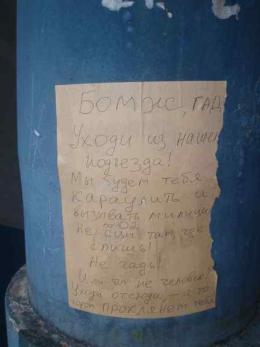 Бомж, гад
Уходи из нашего
подъезда!
Мы будем тебя
караулить и
вызывать милицию
02
Не сци там, где
спишь!
Не гадь!
Или ты не человек!
Уходи отсюда, а то
проклянем тебя